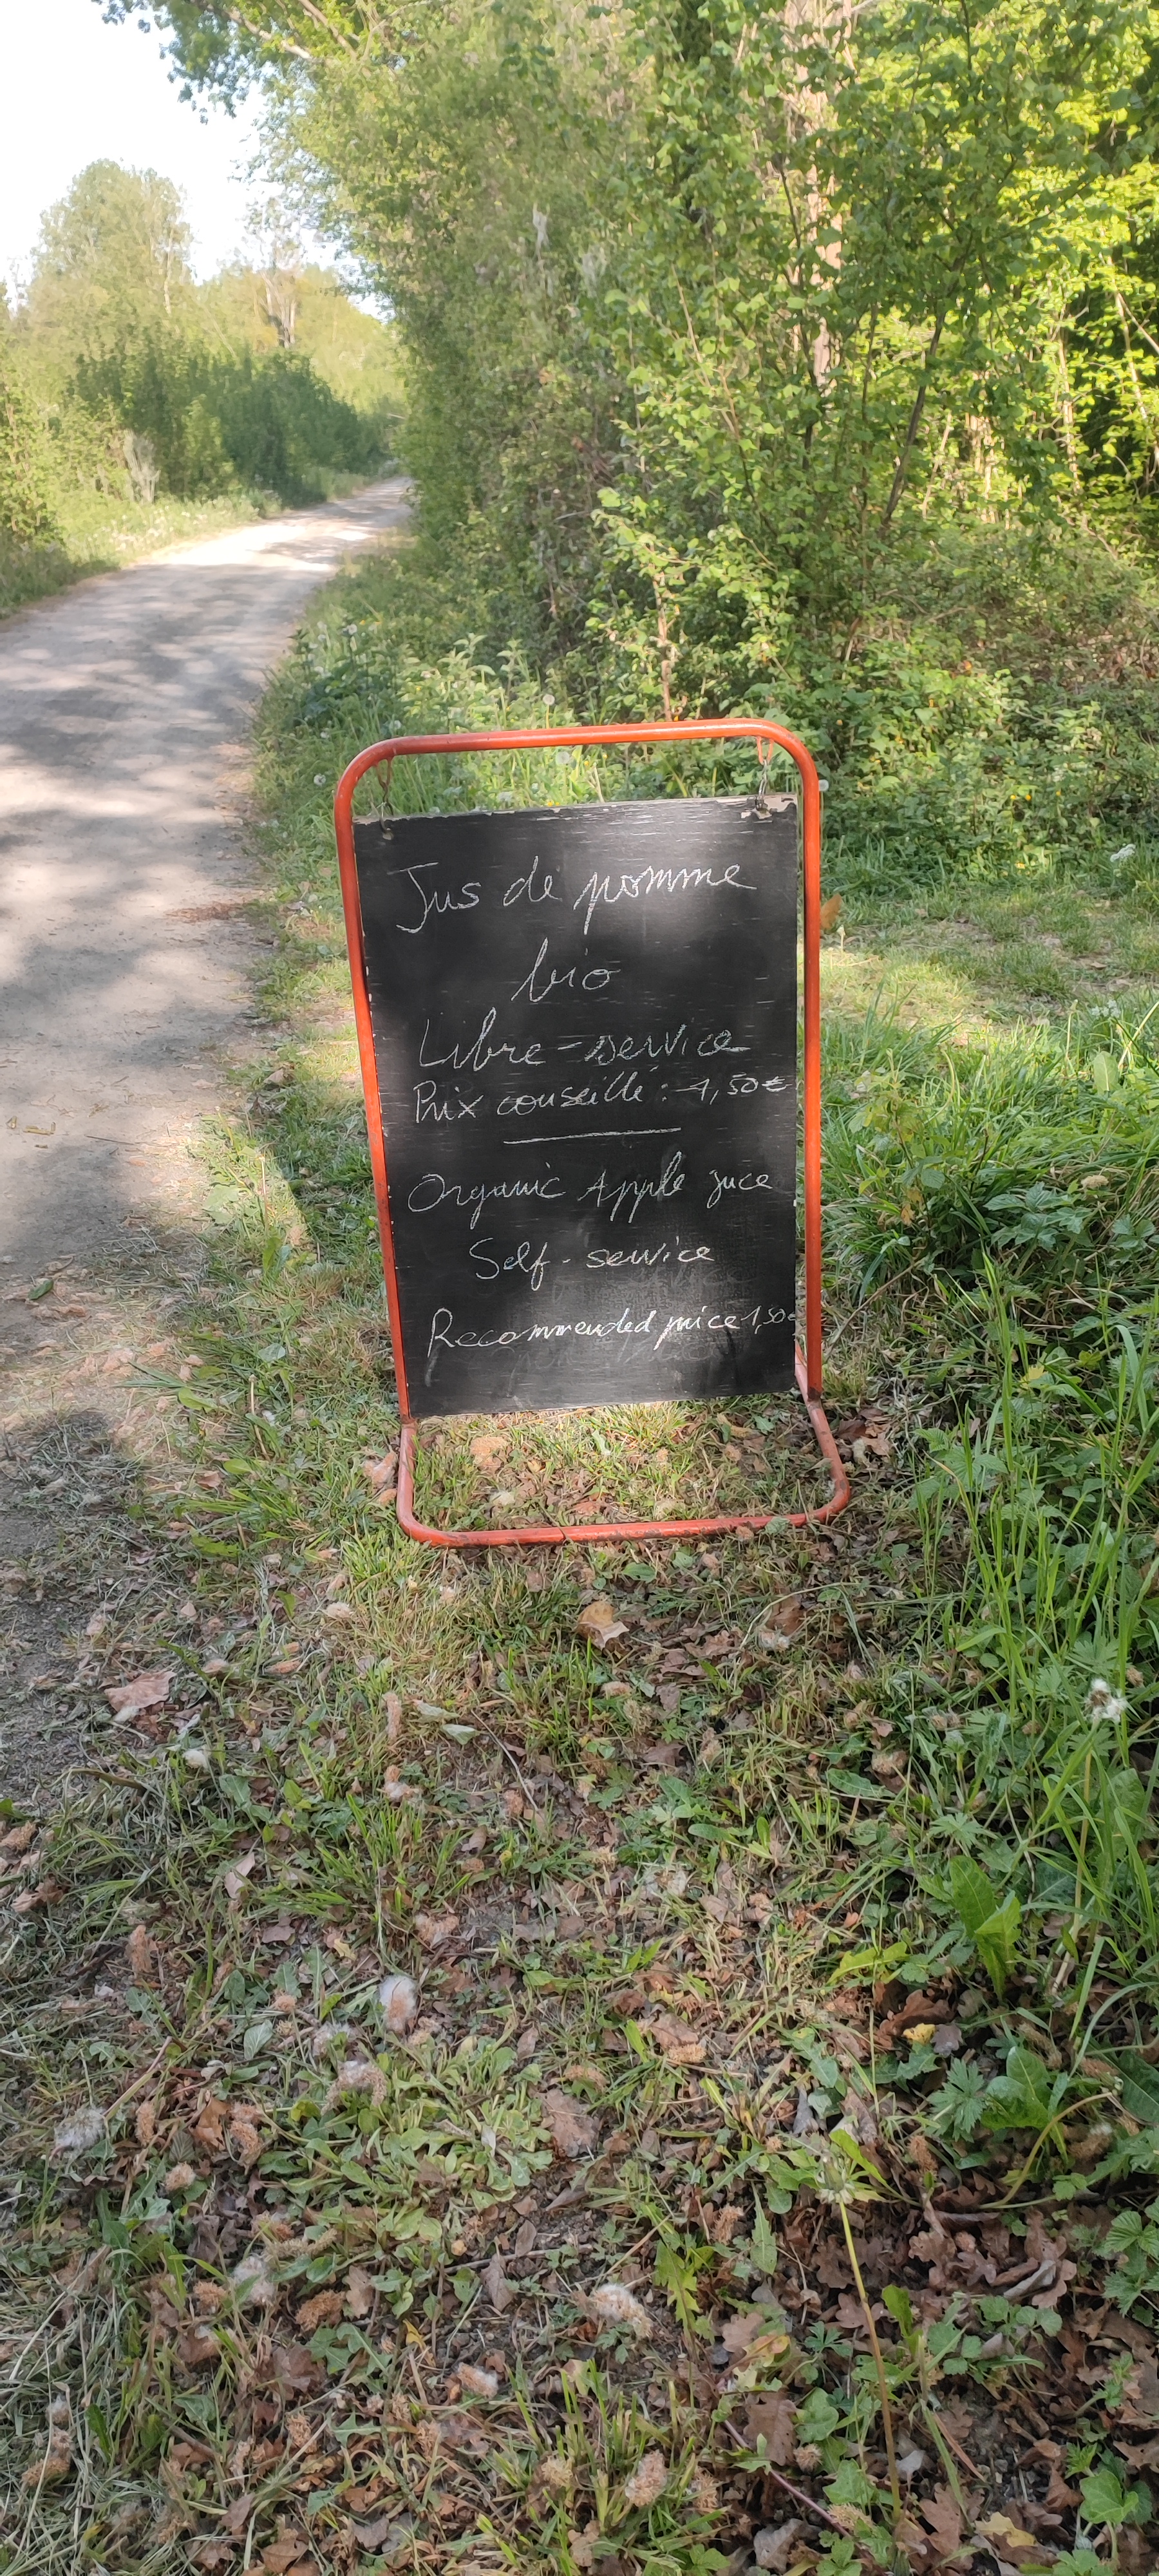 Jus de pomme
bio
Libre-service
Prix conseillé : 1,50€
Organic Apple juce
Self-service
Recommended price 1,50€